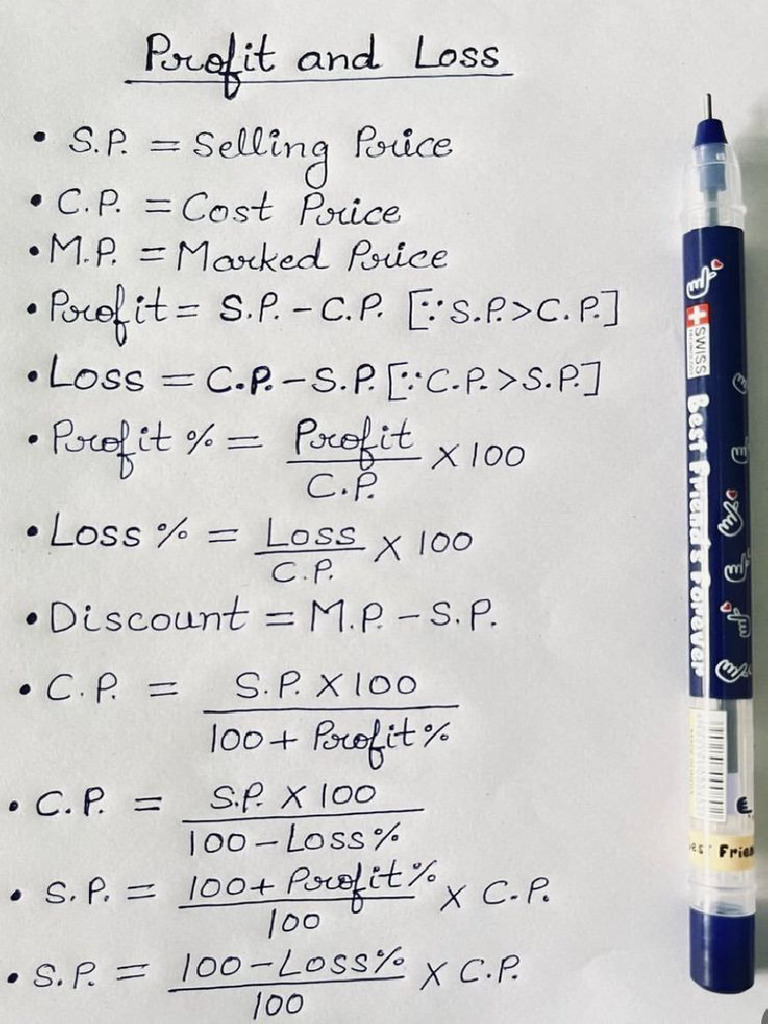 Profit and Loss
• S.P. = Selling Price
• C.P. = Cost Price
• M.P. = Marked Price
• Profit = S.P. - C.P. [∵ S.P. > C.P.]
• Loss = C.P. - S.P. [∵ C.P. > S.P.]
• Profit % = Profit / C.P. × 100
• Loss % = Loss / C.P. × 100
• Discount = M.P. - S.P.
• C.P. = S.P. × 100 / 100 + Profit %
• C.P. = S.P. × 100 / 100 - Loss %
• S.P. = 100 + Profit % / 100 × C.P.
• S.P. = 100 - Loss % / 100 × C.P.
SWISS
Best Friend's Forever